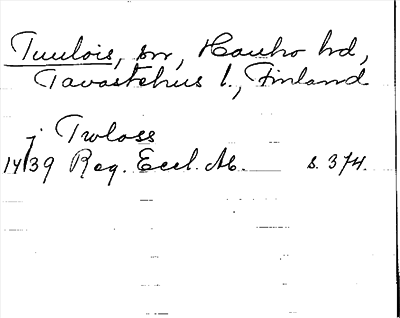 Tuulois, sn, Hauho hd,
Tavastehus l., Finland
j Twloss
1439 Reg. Eccl. Ab. s. 374.